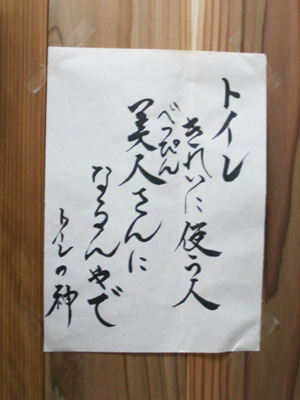 トイレ
きれいに使う人
べっぴん
美人さんに
なるんやで
トイレの神